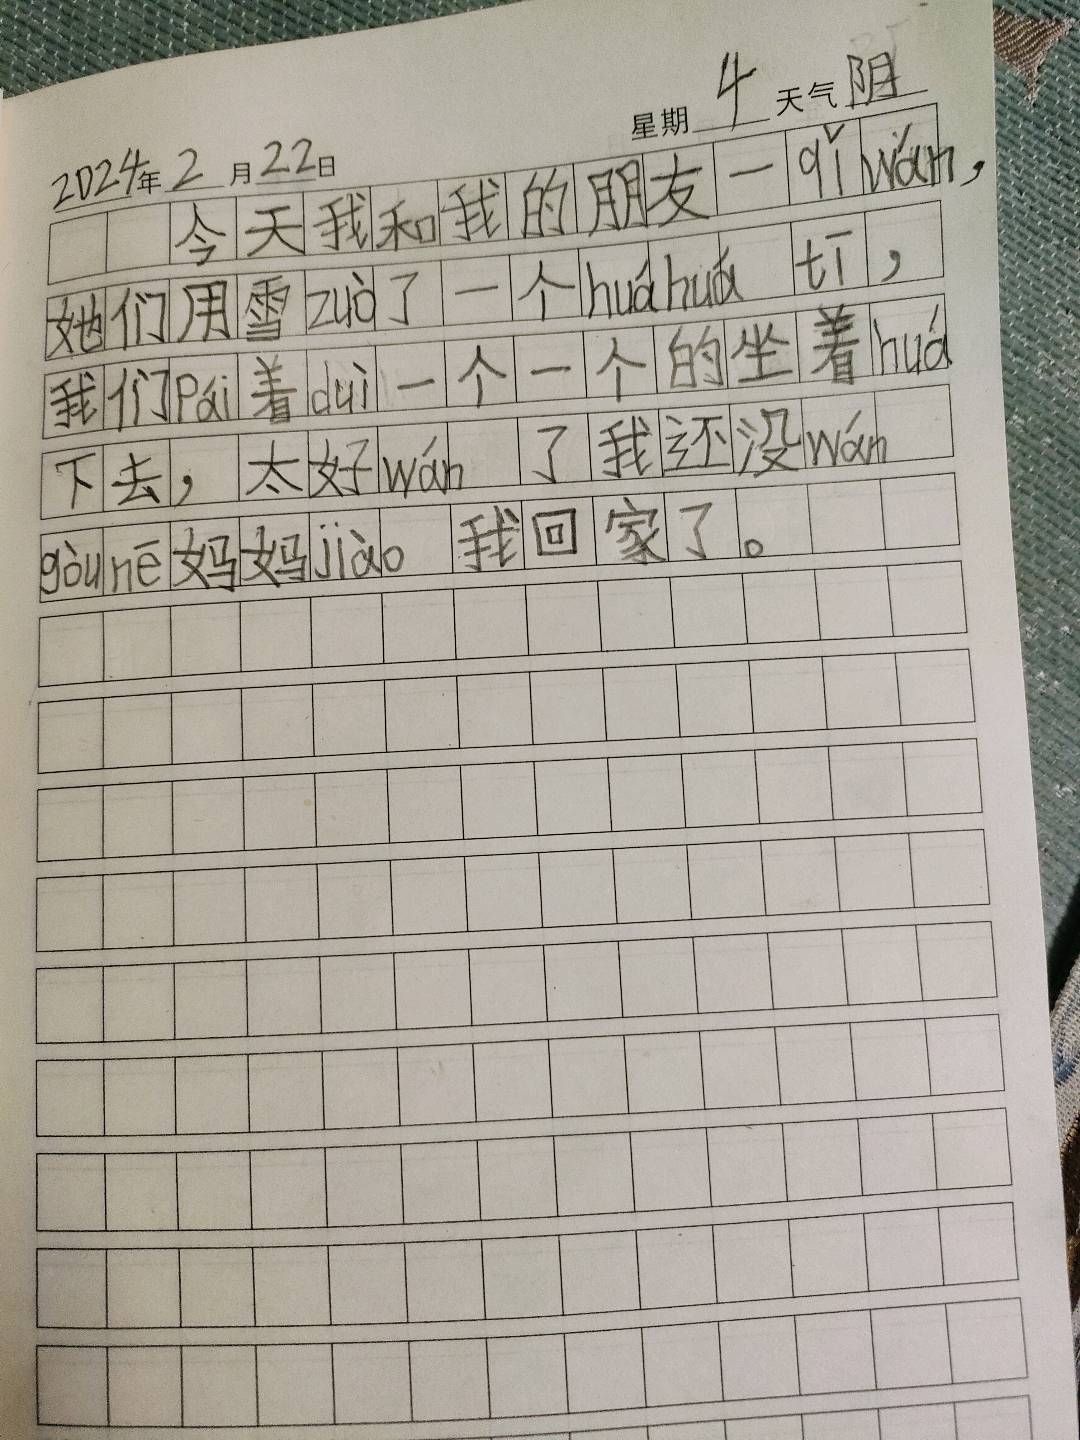 星期 4 天气 阴
2024年 2 月 22 日
今天我和我的朋友一qǐ wán，
她们用雪zuò了一个huá huá tī，
我们Pái着duì一个一个的坐着huá
下去，太好wán 了我还没wán
gòu nē 妈妈jiào 我回家了。